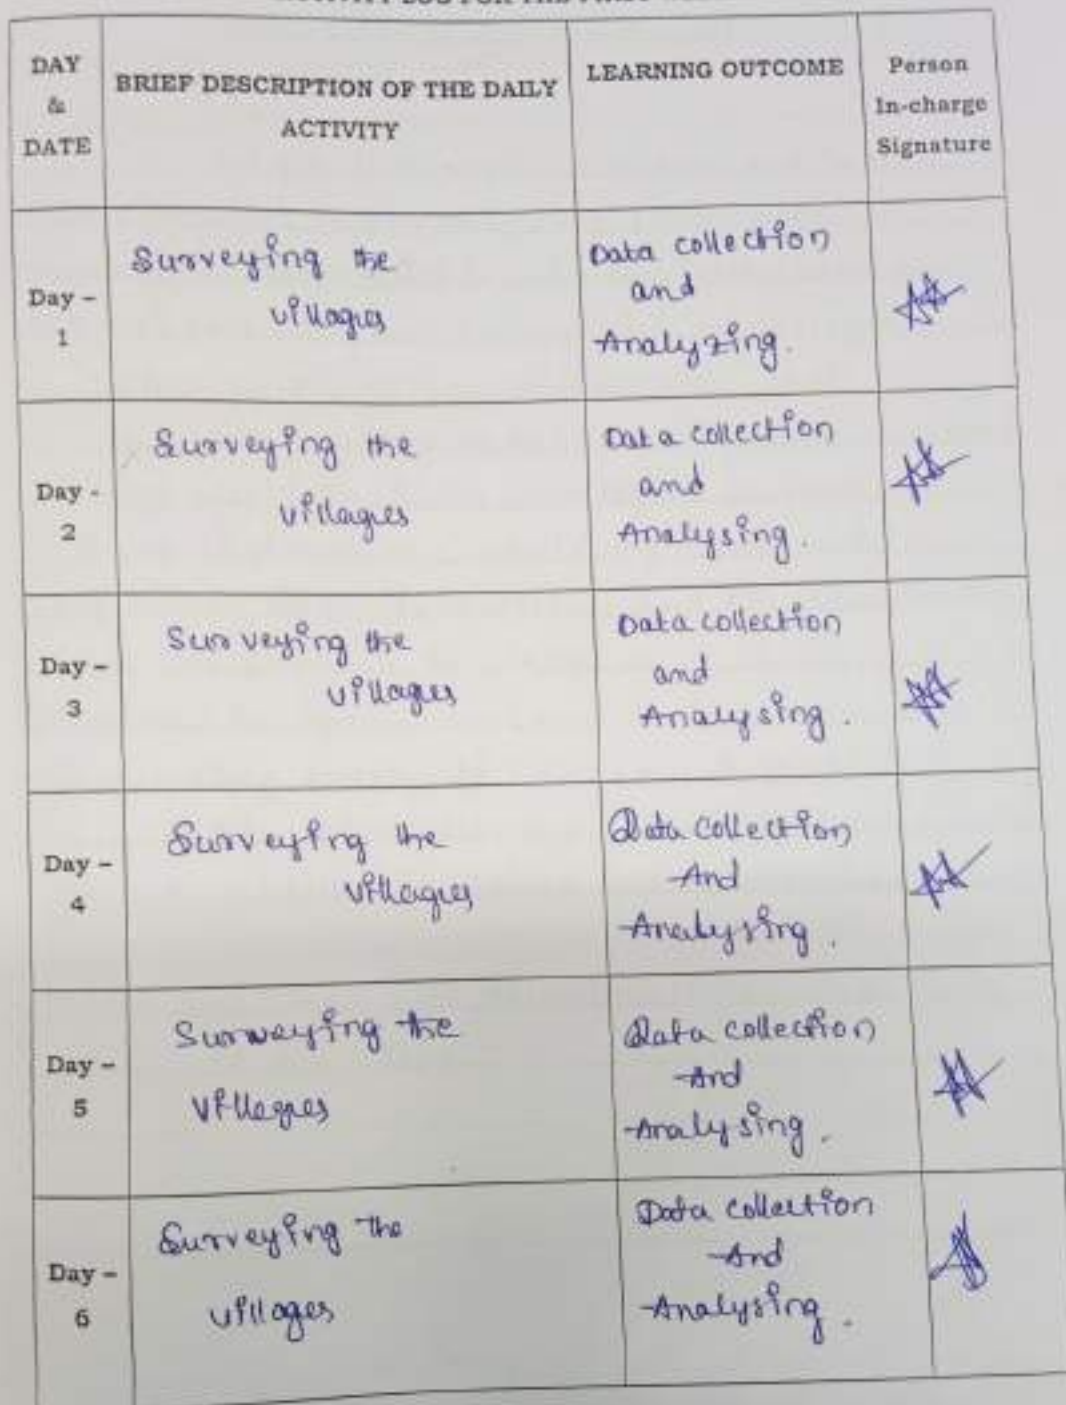 ACTIVITY LOG FOR THE FIRST
DAY
&
DATE
BRIEF DESCRIPTION OF THE DAILY
ACTIVITY
LEARNING OUTCOME
Person
In-charge
Signature
Day –
1
Surveying the
villages
Data collection
and
Analyzing.
Day -
2
Surveying the
villages
Data collection
and
Analysing.
Day –
3
Surveying the
villages
Data collection
and
Analysing.
Day –
4
Surveying the
villages
Data collection
And
Analysing.
Day –
5
Surveying the
villages
Data collection
And
Analysing.
Day –
6
Surveying the
villages
Data collection
And
Analysing.